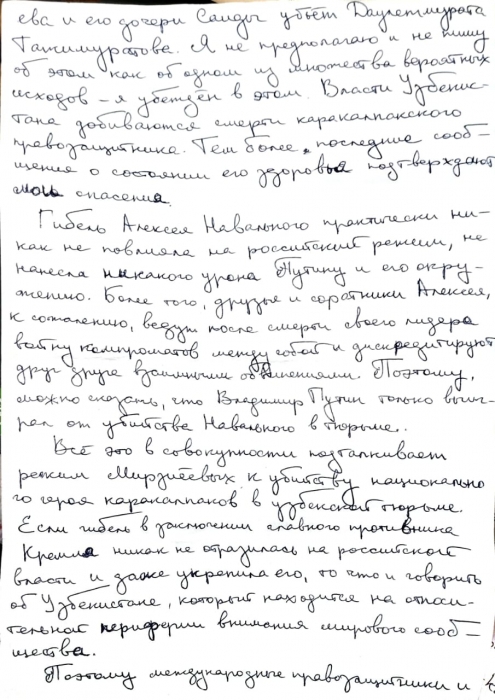 ева и его дочери Саиды убьёт Даулетмурата
Тажимуратова. Я не предполагаю и не пишу
об этом как об одном из множества вероятных
исходов – я убеждён в этом. Власти Узбекис-
тана добиваются смерти каракалпакского
правозащитника. Тем более, последние сооб-
щения о состоянии его здоровья подтверждают
мои опасения.
Гибель Алексея Навального практически ни-
как не повлияла на российский режим, не
нанесла никакого урона Путину и его окру-
жению. Более того, друзья и соратники Алексея,
к сожалению, ведут после смерти своего лидера
войну компроматов между собой и дискредитируют
друг друга взаимными обвинениями. Поэтому,
можно сказать, что Владимир Путин только выиг-
рал от убийства Навального в тюрьме.
Всё это в совокупности подталкивает
режим Мирзиёевых к убийству национально
го героя каракалпаков в узбекской тюрьме.
Если гибель в заключении главного противника
Кремля никак не отразилась на российской
власти и даже укрепила его, то что и говорить
об Узбекистане, который находится на относи-
тельной периферии внимания мирового сооб-
щества.
Поэтому международные правозащитники и